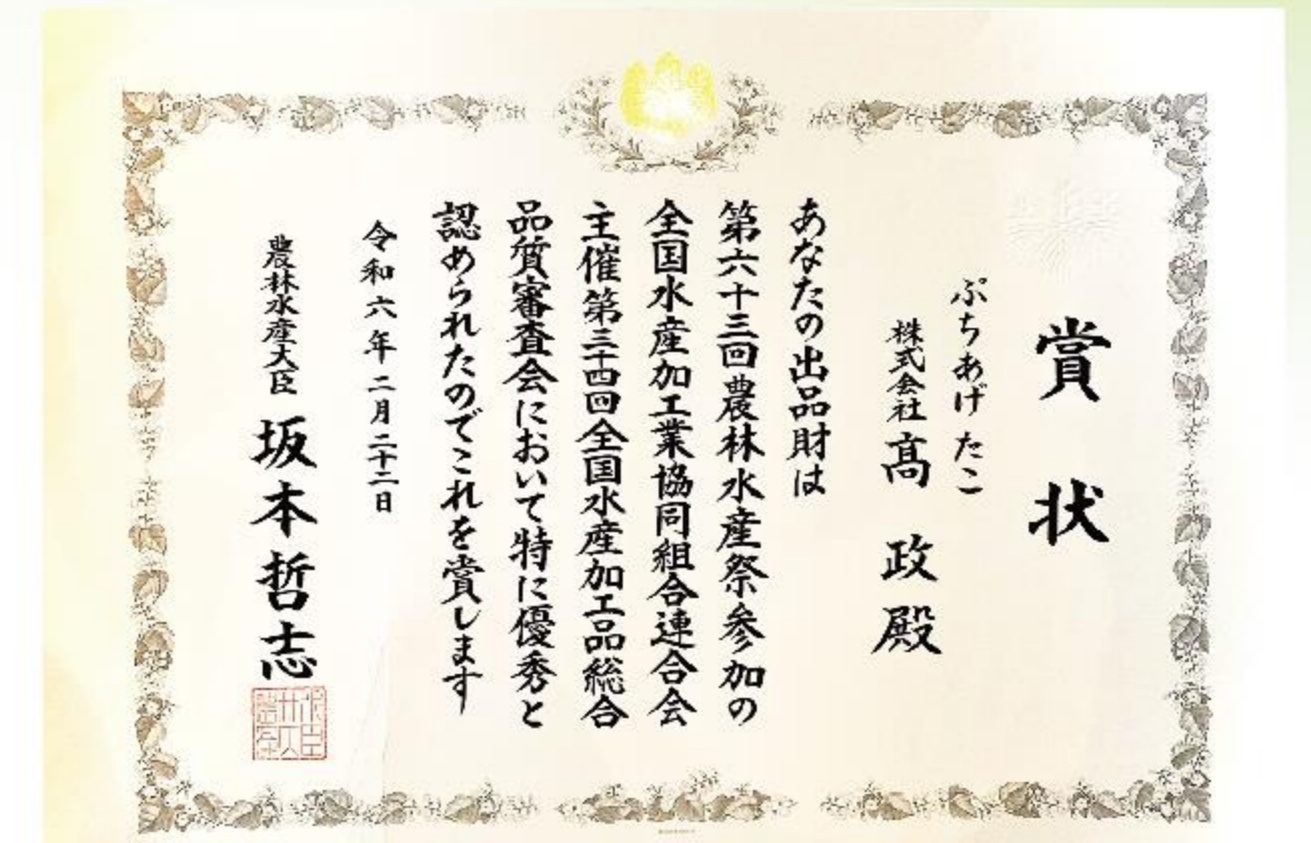 賞状
ぷちあげたこ
株式会社 髙政殿
あなたの出品財は
第六十三回農林水産祭参加の
全国水産加工業協同組合連合会
主催第三十四回全国水産加工品総合
品質審査会において特に優秀と
認められたのでこれを賞します
令和六年二月二十二日
農林水産大臣 坂本哲志